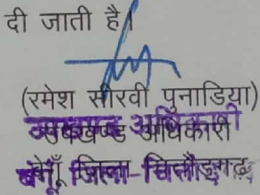 दी जाती है।
(रमेश सीरवी पुनाडिया)
उपखण्ड अधिकारी
बेगूँ, जिला-चित्तौड़गढ़